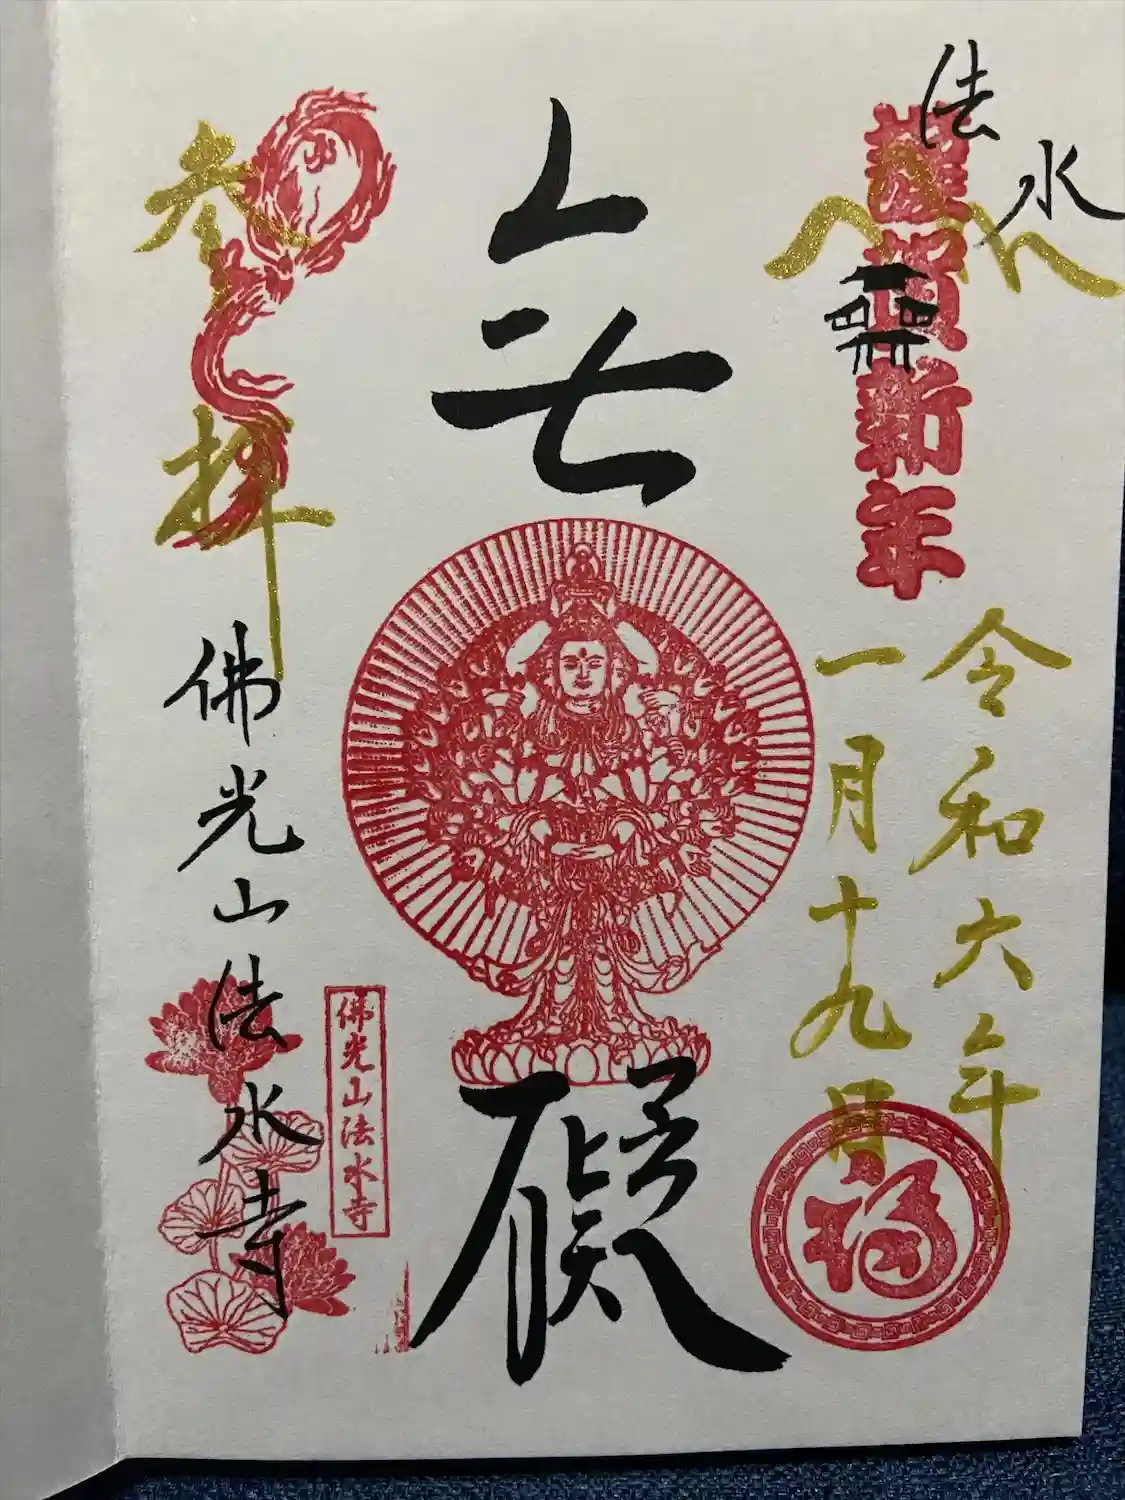 法水
謹賀新年
令和六年
一月十九日
福
無礙
参拝
佛光山法水寺
佛光山法水寺